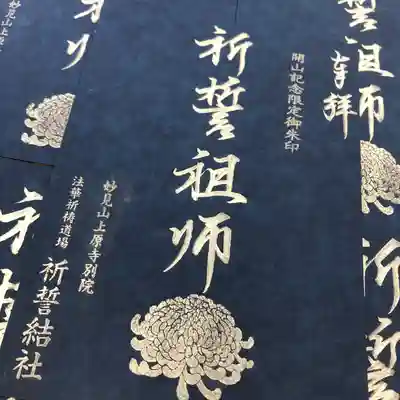 開山記念限定御朱印
祈誓祖師
妙見山上原寺別院
法華祈祷道場
祈誓結社
誓祖師
奉拝
妙見山上原
祈誓